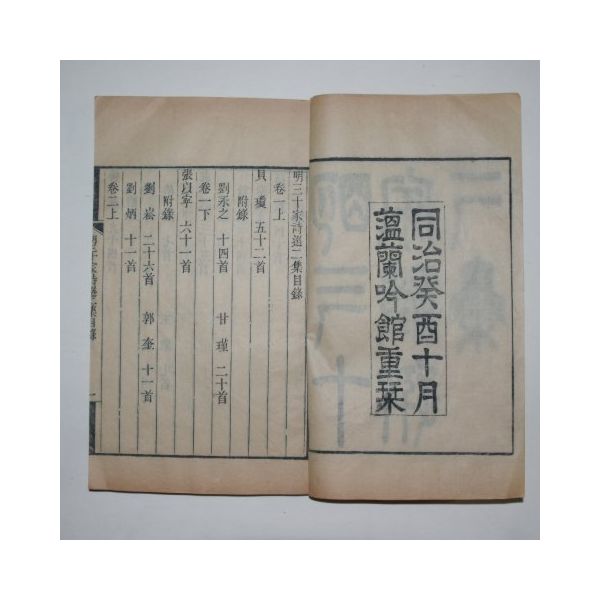 同治癸酉十月
蕰蘭吟館重栞
明三十家詩選二集目錄
卷一上
貝瓊 五十二首
附錄
劉永之 十四首 甘瑾 二十首
卷一下
張以寧 六十一首
附錄
劉崧 二十六首 郭奎 十一首
劉炳 十一首
卷二上